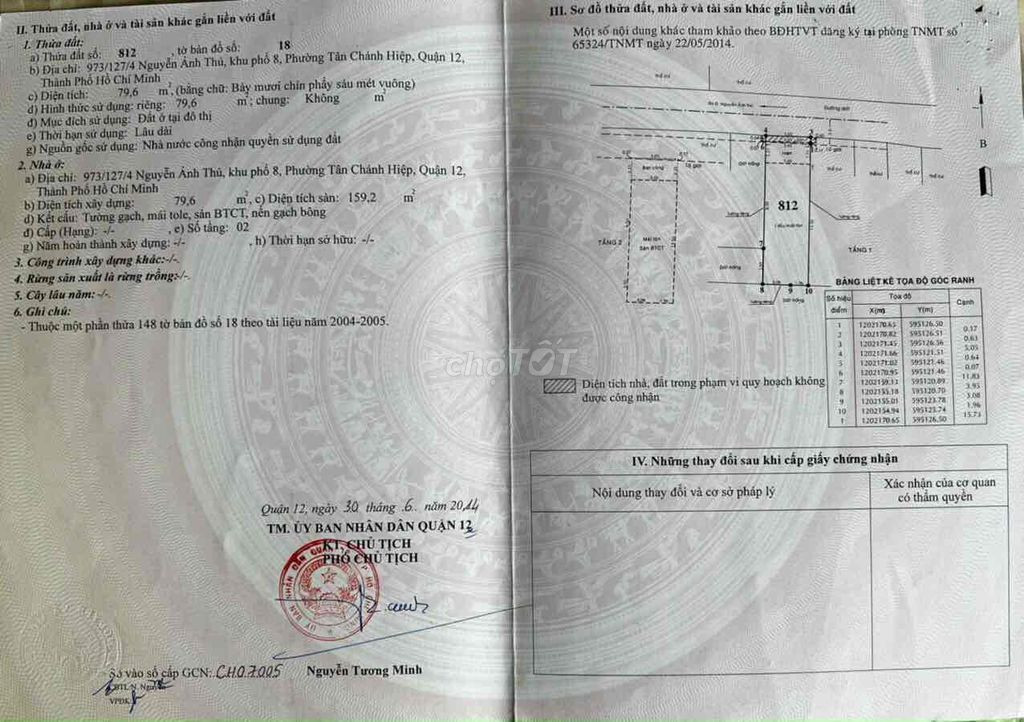 II. Thửa đất, nhà ở và tài sản khác gắn liền với đất
1. Thửa đất:
a) Thửa đất số: 812 , tờ bản đồ số: 18
b) Địa chỉ: 973/127/4 Nguyễn Ảnh Thủ, khu phố 8, Phường Tân Chánh Hiệp, Quận 12,
Thành Phố Hồ Chí Minh
c) Diện tích: 79,6 m², (bằng chữ: Bảy mươi chín phẩy sáu mét vuông)
d) Hình thức sử dụng: riêng: 79,6 m²; chung: Không m²
đ) Mục đích sử dụng: Đất ở tại đô thị
e) Thời hạn sử dụng: Lâu dài
g) Nguồn gốc sử dụng: Nhà nước công nhận quyền sử dụng đất
2. Nhà ở:
a) Địa chỉ: 973/127/4 Nguyễn Ảnh Thủ, khu phố 8, Phường Tân Chánh Hiệp, Quận 12,
Thành Phố Hồ Chí Minh
b) Diện tích xây dựng: 79,6 m², c) Diện tích sàn: 159,2 m²
d) Kết cấu: Tường gạch, mái tole, sàn BTCT, nền gạch bông
đ) Cấp (Hạng): -/- , e) Số tầng: 02
g) Năm hoàn thành xây dựng: -/- , h) Thời hạn sở hữu: -/-
3. Công trình xây dựng khác:-/-.
4. Rừng sản xuất là rừng trồng:-/-.
5. Cây lâu năm:-/-.
6. Ghi chú:
- Thuộc một phần thửa 148 tờ bản đồ số 18 theo tài liệu năm 2004-2005.
Quận 12, ngày 30 tháng .6. năm 2014
TM. ỦY BAN NHÂN DÂN QUẬN 12
KT. CHỦ TỊCH
PHÓ CHỦ TỊCH
Nguyễn Tương Minh
Số vào sổ cấp GCN: CH07005
VPĐK
III. Sơ đồ thửa đất, nhà ở và tài sản khác gắn liền với đất
Một số nội dung khác tham khảo theo BĐHTVT đăng ký tại phòng TNMT số
65324/TNMT ngày 22/05/2014.
B
812
TẦNG 2
Mái tôn
Sàn BTCT
TẦNG 1
8 9 10
BẢNG LIỆT KÊ TỌA ĐỘ GÓC RANH
Số hiệu điểm Tọa độ Cạnh
X(m) Y(m)
1 1202170.65 595126.50
0.17
2 1202170.82 595126.51
0.63
3 1202171.45 595126.56
5.05
4 1202171.66 595121.51
0.64
5 1202171.02 595121.46
0.07
6 1202170.95 595121.46
11.83
7 1202159.13 595120.89
3.95
8 1202155.18 595120.70
3.08
9 1202155.01 595123.78
1.96
10 1202154.94 595123.74
15.73
1 1202170.65 595126.50
Diện tích nhà, đất trong phạm vi quy hoạch không
được công nhận
chợTỐT
IV. Những thay đổi sau khi cấp giấy chứng nhận
Nội dung thay đổi và cơ sở pháp lý
Xác nhận của cơ quan
có thẩm quyền